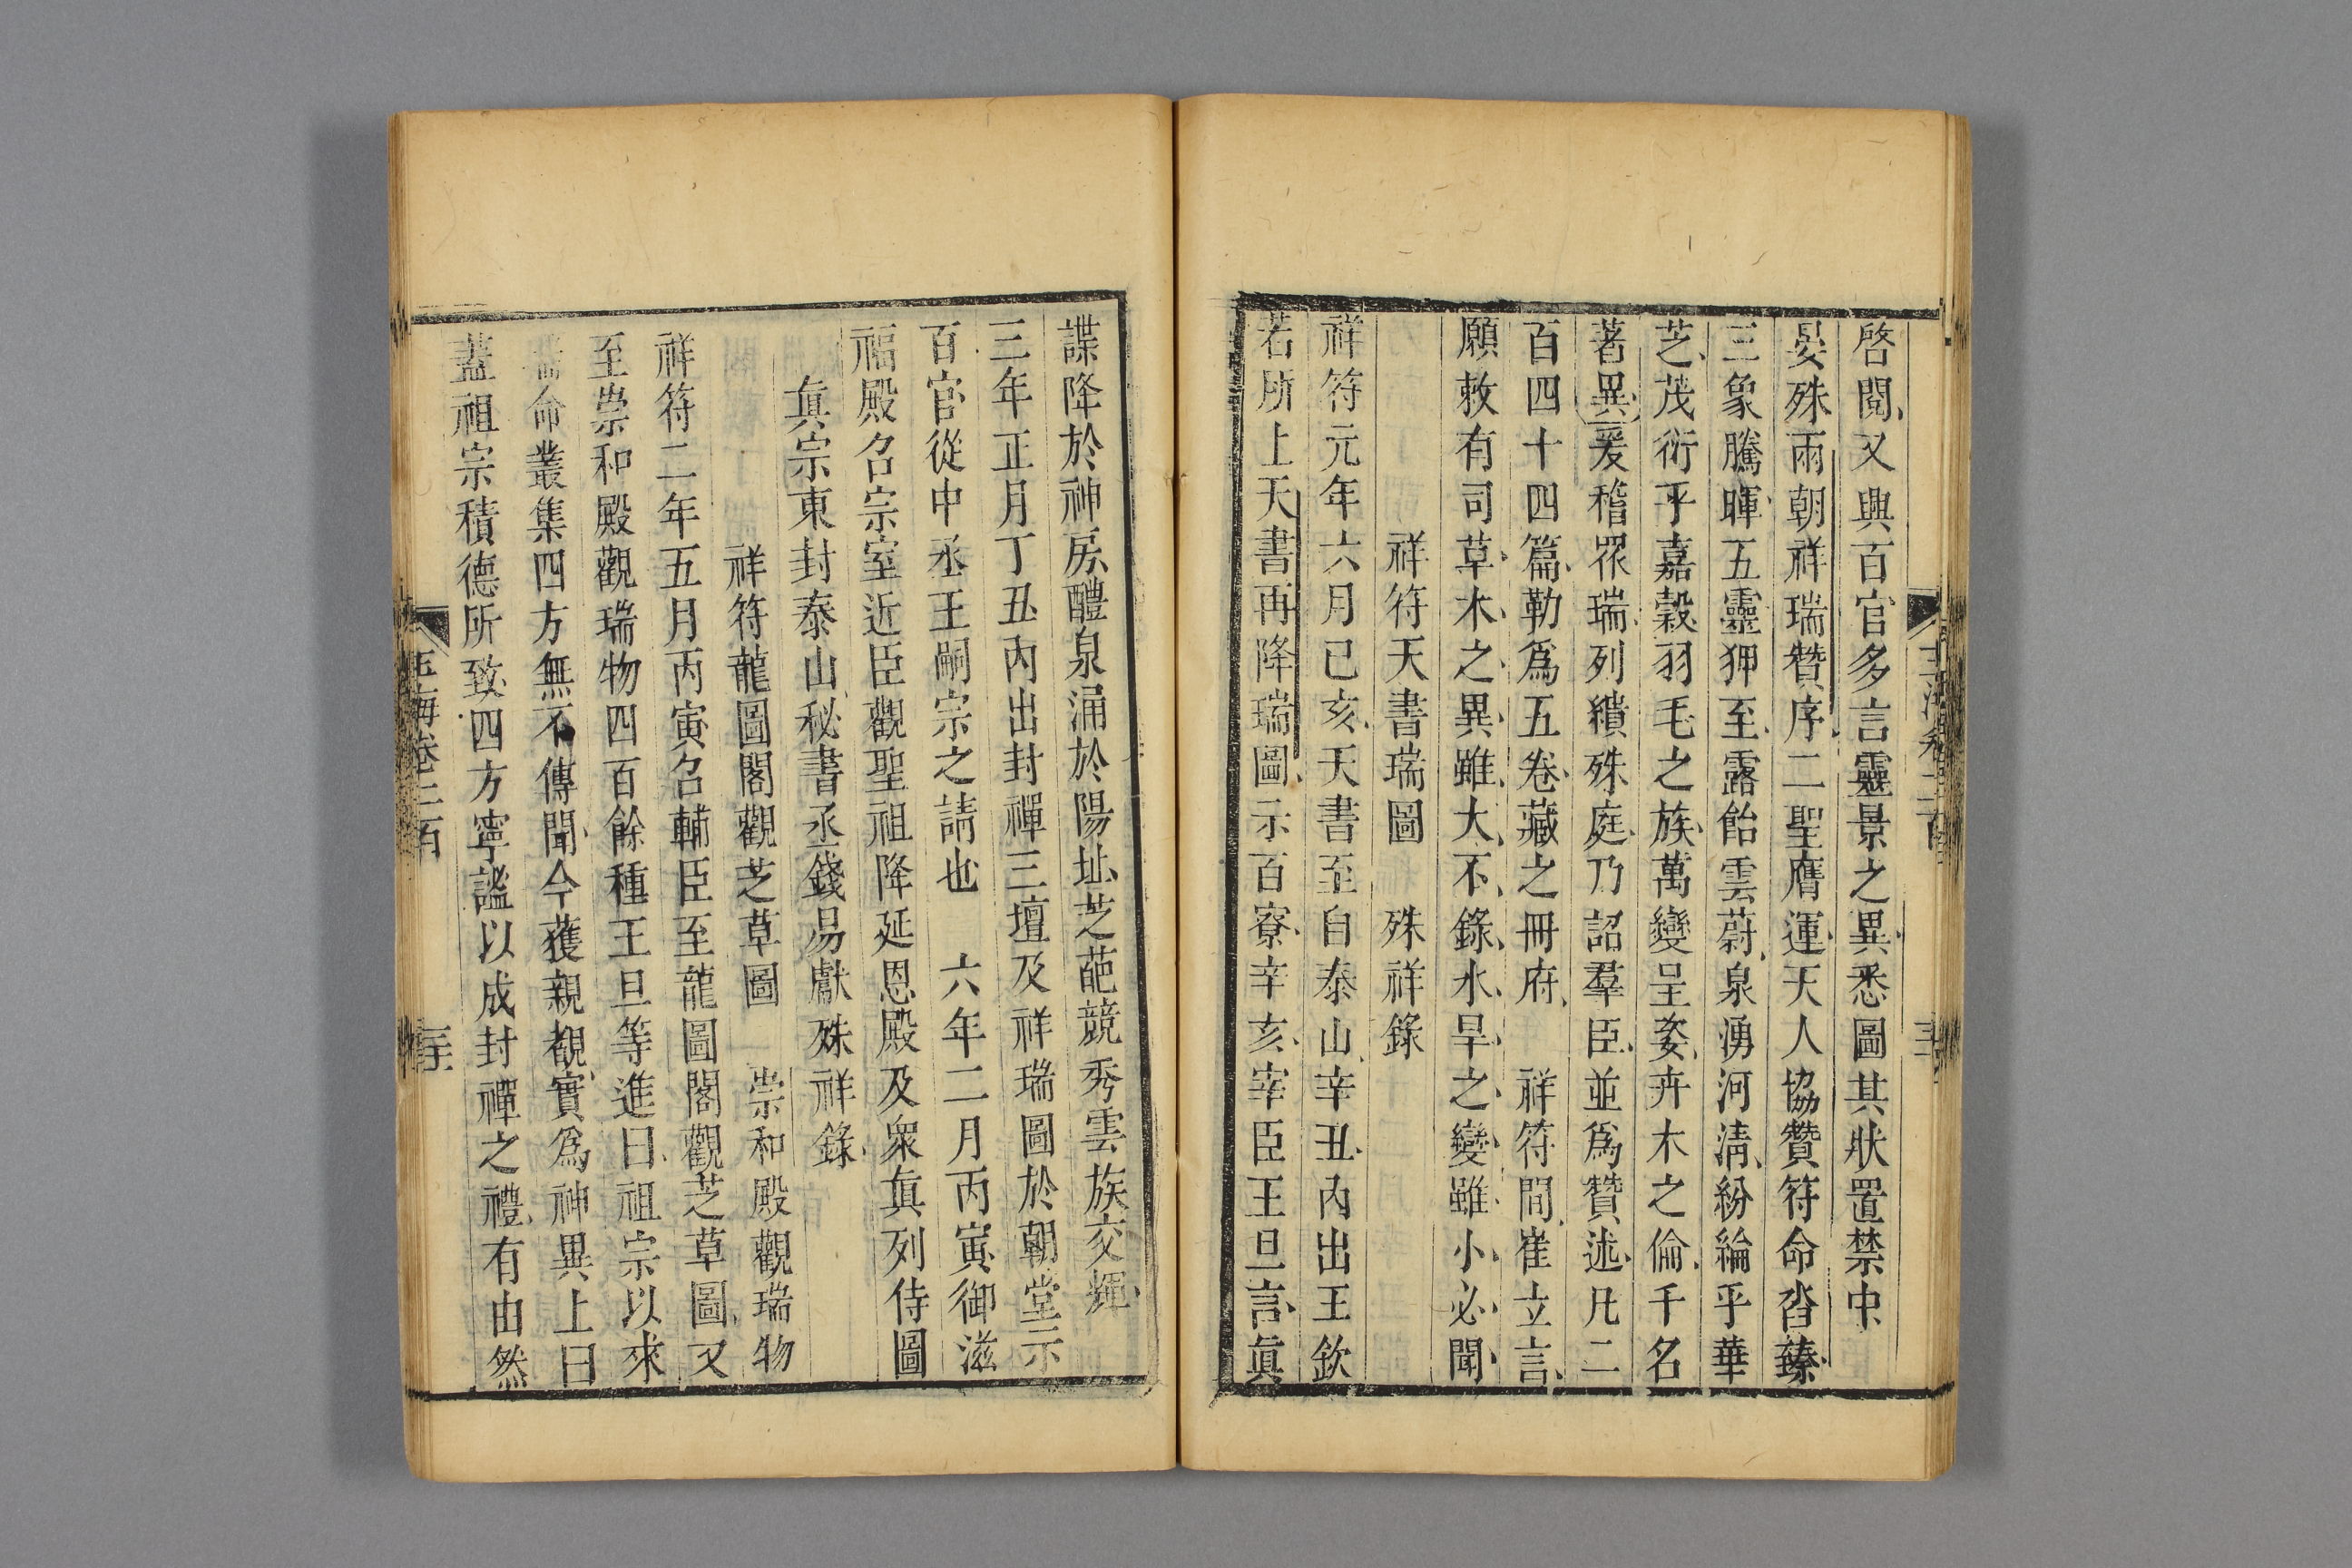 啓閱又與百官多言靈景之異悉圖其狀置禁中
晏殊兩朝祥瑞贊序二聖膺運天人協贊符命沓臻
三象騰暉五靈狎至露飴雲蔚泉湧河淸紛綸乎華
芝茂衍乎嘉穀羽毛之族萬變呈姿卉木之倫千名
著異爰稽眾瑞列繢殊庭乃詔羣臣並爲贊述凡二
百四十四篇勒爲五卷藏之冊府 祥符間崔立言
願敕有司草木之異雖大不錄水旱之變雖小必聞
祥符天書瑞圖 殊祥錄
祥符元年六月己亥天書至自泰山辛丑內出王欽
若所上天書再降瑞圖示百寮辛亥宰臣王旦言眞
諜降於神房醴泉涌於陽址芝葩競秀雲族交輝
三年正月丁丑內出封禪三壇及祥瑞圖於朝堂示
百官從中丞王嗣宗之請也 六年二月丙寅御滋
福殿召宗室近臣觀聖祖降延恩殿及衆眞列侍圖
眞宗東封泰山秘書丞錢易獻殊祥錄
祥符龍圖閣觀芝草圖 崇和殿觀瑞物
祥符二年五月丙寅召輔臣至龍圖閣觀芝草圖又
至崇和殿觀瑞物四百餘種王旦等進曰祖宗以來
瑞命叢集四方無不傳聞今獲親覩實爲神異上曰
蓋祖宗積德所致四方寧謐以成封禪之禮有由然
玉海卷二百